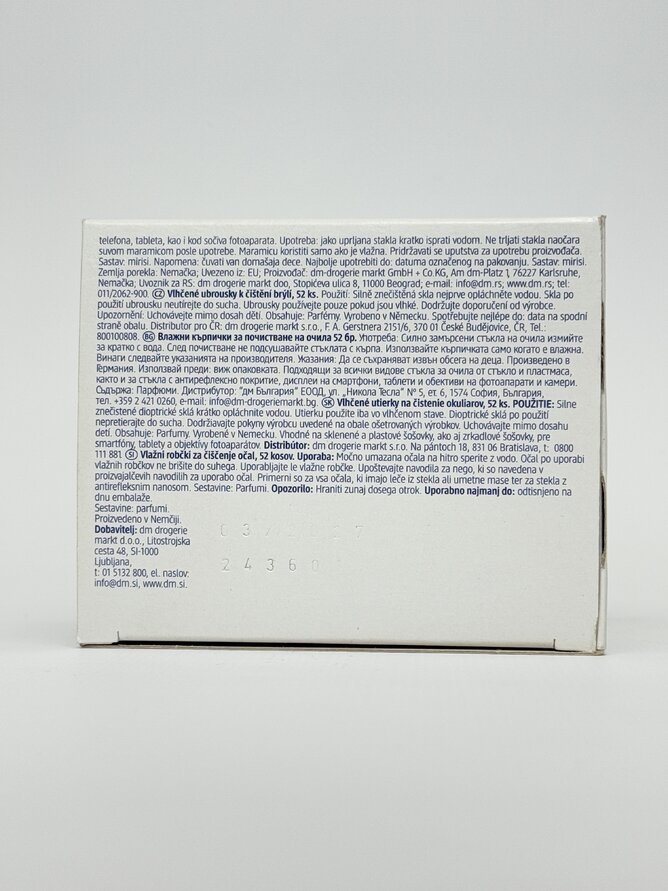 telefona, tableta, kao i kod sočiva fotoaparata. Upotreba: jako uprljana stakla kratko isprati vodom. Ne trljati stakla naočara
suvom maramicom posle upotrebe. Maramicu koristiti samo ako je vlažna. Pridržavati se uputstva za upotrebu proizvođača.
Sastav: mirisi. Napomena: čuvati van domašaja dece. Najbolje upotrebiti do: datuma označenog na pakovanju. Sastav: mirisi.
Zemlja porekla: Nemačka; Uvezeno iz: EU; Proizvođač: dm-drogerie markt GmbH + Co.KG, Am dm-Platz 1, 76227 Karlsruhe,
Nemačka; Uvoznik za RS: dm drogerie markt doo, Stopićeva ulica 8, 11000 Beograd; e-mail: info@dm.rs; www.dm.rs; tel:
011/2062-900. CZ Vlhčené ubrousky k čištění brýlí, 52 ks. Použití: Silně znečištěná skla nejprve opláchněte vodou. Skla po
použití ubrousku neutírejte do sucha. Ubrousky používejte pouze pokud jsou vlhké. Dodržujte doporučení od výrobce.
Upozornění: Uchovávejte mimo dosah dětí. Obsahuje: Parfémy. Vyrobeno v Německu. Spotřebujte nejlépe do: data na spodní
straně obalu. Distributor pro ČR: dm drogerie markt s.r.o., F. A. Gerstnera 2151/6, 370 01 České Budějovice, ČR, Tel.:
800100808. BG Влажни кърпички за почистване на очила 52 бр. Употреба: Силно замърсени стъкла на очила измийте
за кратко с вода. След почистване не подсушавайте стъклата с кърпа. Използвайте кърпичката само когато е влажна.
Винаги следвайте указанията на производителя. Указания: Да се съхраняват извън обсега на деца. Произведено в
Германия. Използвай преди: виж опаковката. Подходящи за всички видове стъкла за очила от стъкло и пластмаса,
както и за стъкла с антирефлексно покритие, дисплеи на смартфони, таблети и обективи на фотоапарати и камери.
Съдържа: Парфюми. Дистрибутор: "дм България" ЕООД, ул. „Никола Тесла" № 5, ет. 6, 1574 София, България,
тел. +359 2 421 0260, e-mail: info@dm-drogeriemarkt.bg. SK Vlhčené utierky na čistenie okuliarov, 52 ks. POUŽITIE: Silne
znečistené dioptrické sklá krátko opláchnite vodou. Utierku použite iba vo vlhčenom stave. Dioptrické sklá po použití
nepretierajte do sucha. Dodržiavajte pokyny výrobcu uvedené na obale ošetrovaných výrobkov. Uchovávajte mimo dosahu
detí. Obsahuje: Parfumy. Vyrobené v Nemecku. Vhodné na sklenené a plastové šošovky, ako aj zrkadlové šošovky, pre
smartfóny, tablety a objektívy fotoaparátov. Distribútor: dm drogerie markt s.r.o. Na pántoch 18, 831 06 Bratislava, t: 0800
111 881 SI Vlažni robčki za čiščenje očal, 52 kosov. Uporaba: Močno umazana očala na hitro sperite z vodo. Očal po uporabi
vlažnih robčkov ne brišite do suhega. Uporabljajte le vlažne robčke. Upoštevajte navodila za nego, ki so navedena v
proizvajalčevih navodilih za uporabo očal. Primerni so za vsa očala, ki imajo leče iz stekla ali umetne mase ter za stekla z
antirefleksnim nanosom. Sestavine: Parfumi. Opozorilo: Hraniti zunaj dosega otrok. Uporabno najmanj do: odtisnjeno na
dnu embalaže.
Sestavine: parfumi.
Proizvedeno v Nemčiji.
Dobavitelj: dm drogerie
markt d.o.o., Litostrojska
cesta 48, SI-1000
Ljubljana,
t: 01 5132 800, el. naslov:
info@dm.si, www.dm.si.
24360